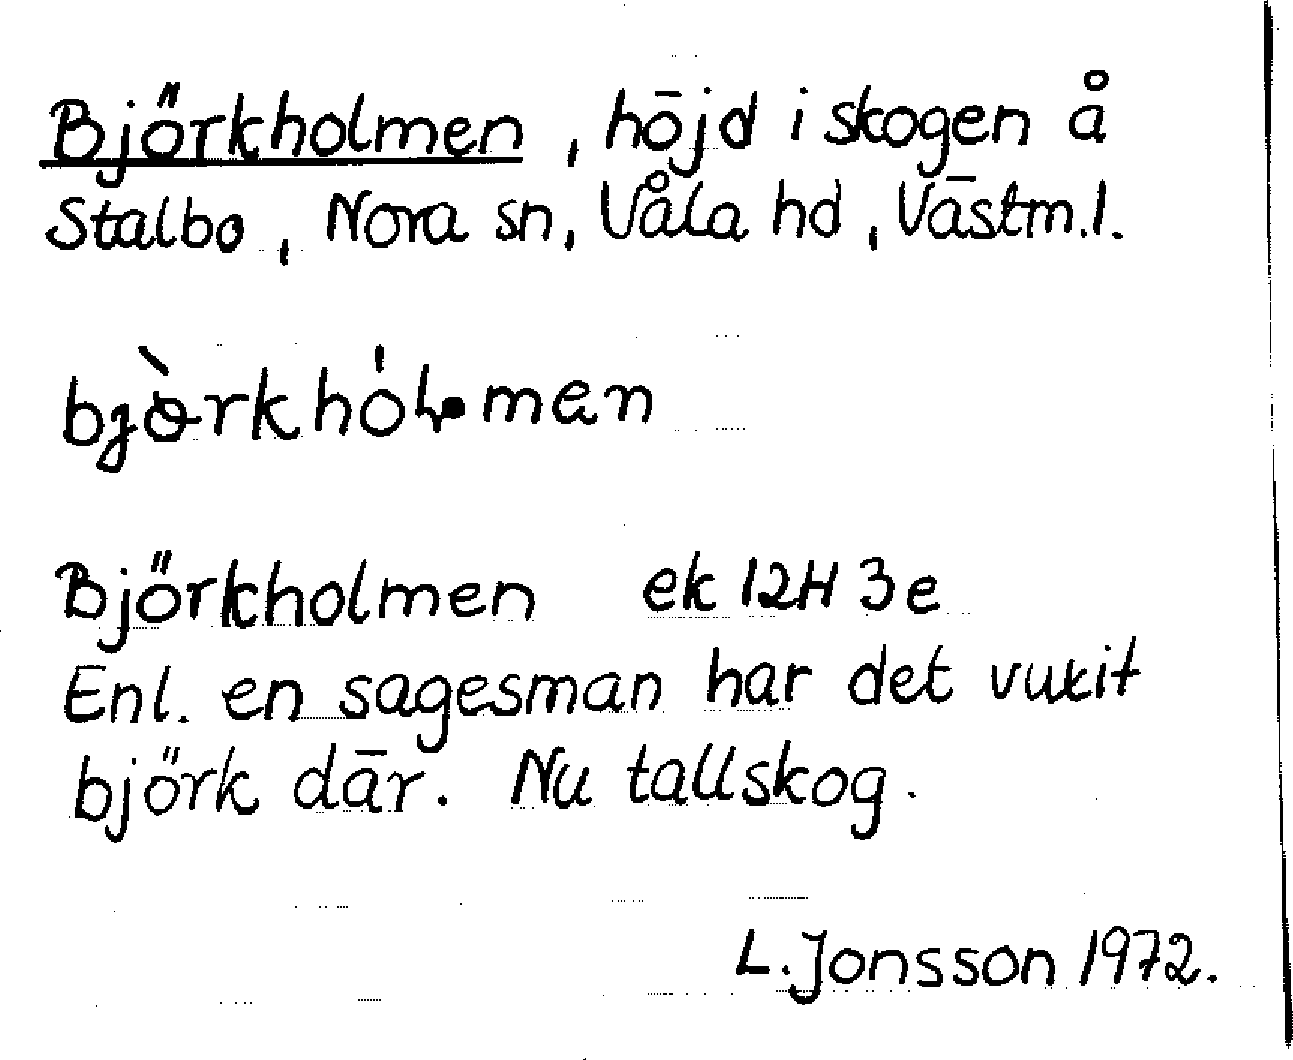 Björkholmen, höjd i skogen å
Stalbo, Nora sn, Våla hd, Västm.l.
Björkholmen ek 12H 3e
Enl. en sagesman har det vuxit
björk där. Nu tallskog.
L. Jonsson 1972.